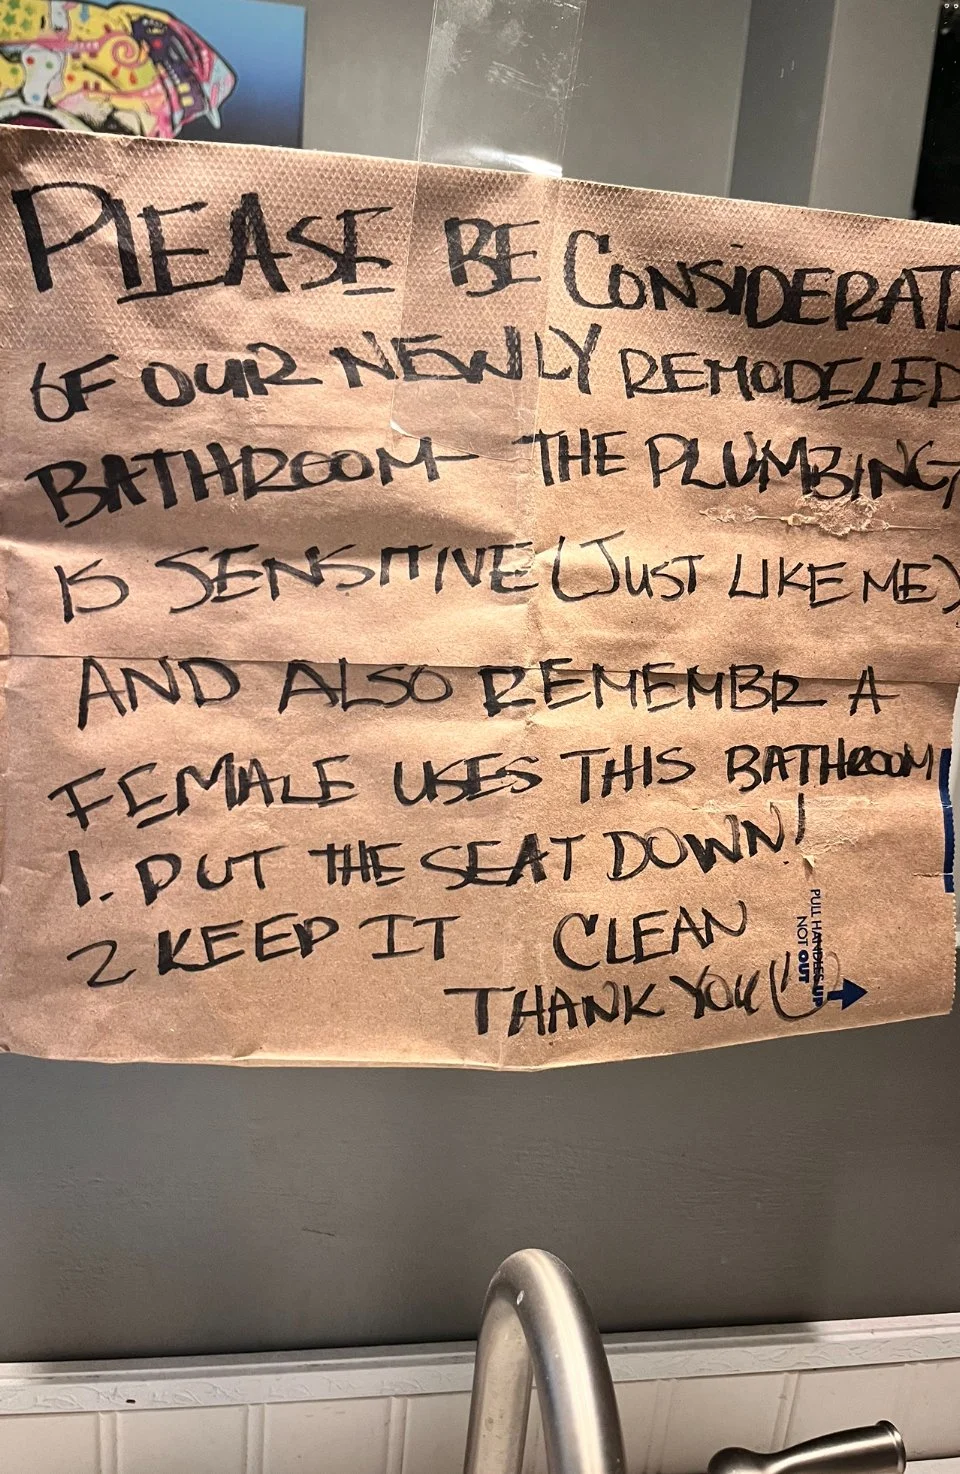 PLEASE BE CONSIDERAT
OF OUR NEWLY REMODELED
BATHROOM - THE PLUMBING
IS SENSITIVE (JUST LIKE ME)
AND ALSO REMEMBR A
FEMALE USES THIS BATHROOM
1. PUT THE SEAT DOWN!
2 KEEP IT CLEAN
THANK YOU
PULL HANDLES UP
NOT OUT